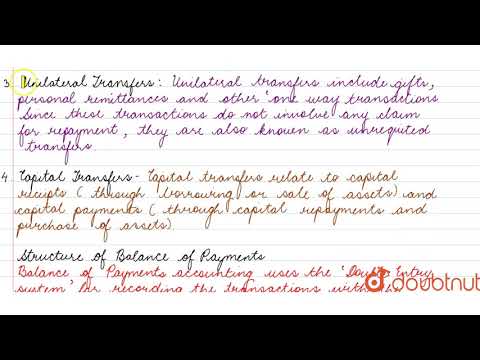 3. Unilateral Transfers: Unilateral transfers include gifts,
personal remittances and other 'one way transactions
Since these transactions do not involve any claim
for repayment, they are also known as unrequited
transfers
4. Capital Transfers- Capital transfers relate to capital
reciepts (through borrowing or sale of assets) and
capital payments (through capital repayments and
purchase of assets)
Structure of Balance of Payments
Balance of Payments accounting uses the 'Double Entry
system' for recording the transactions with the
doubtnut